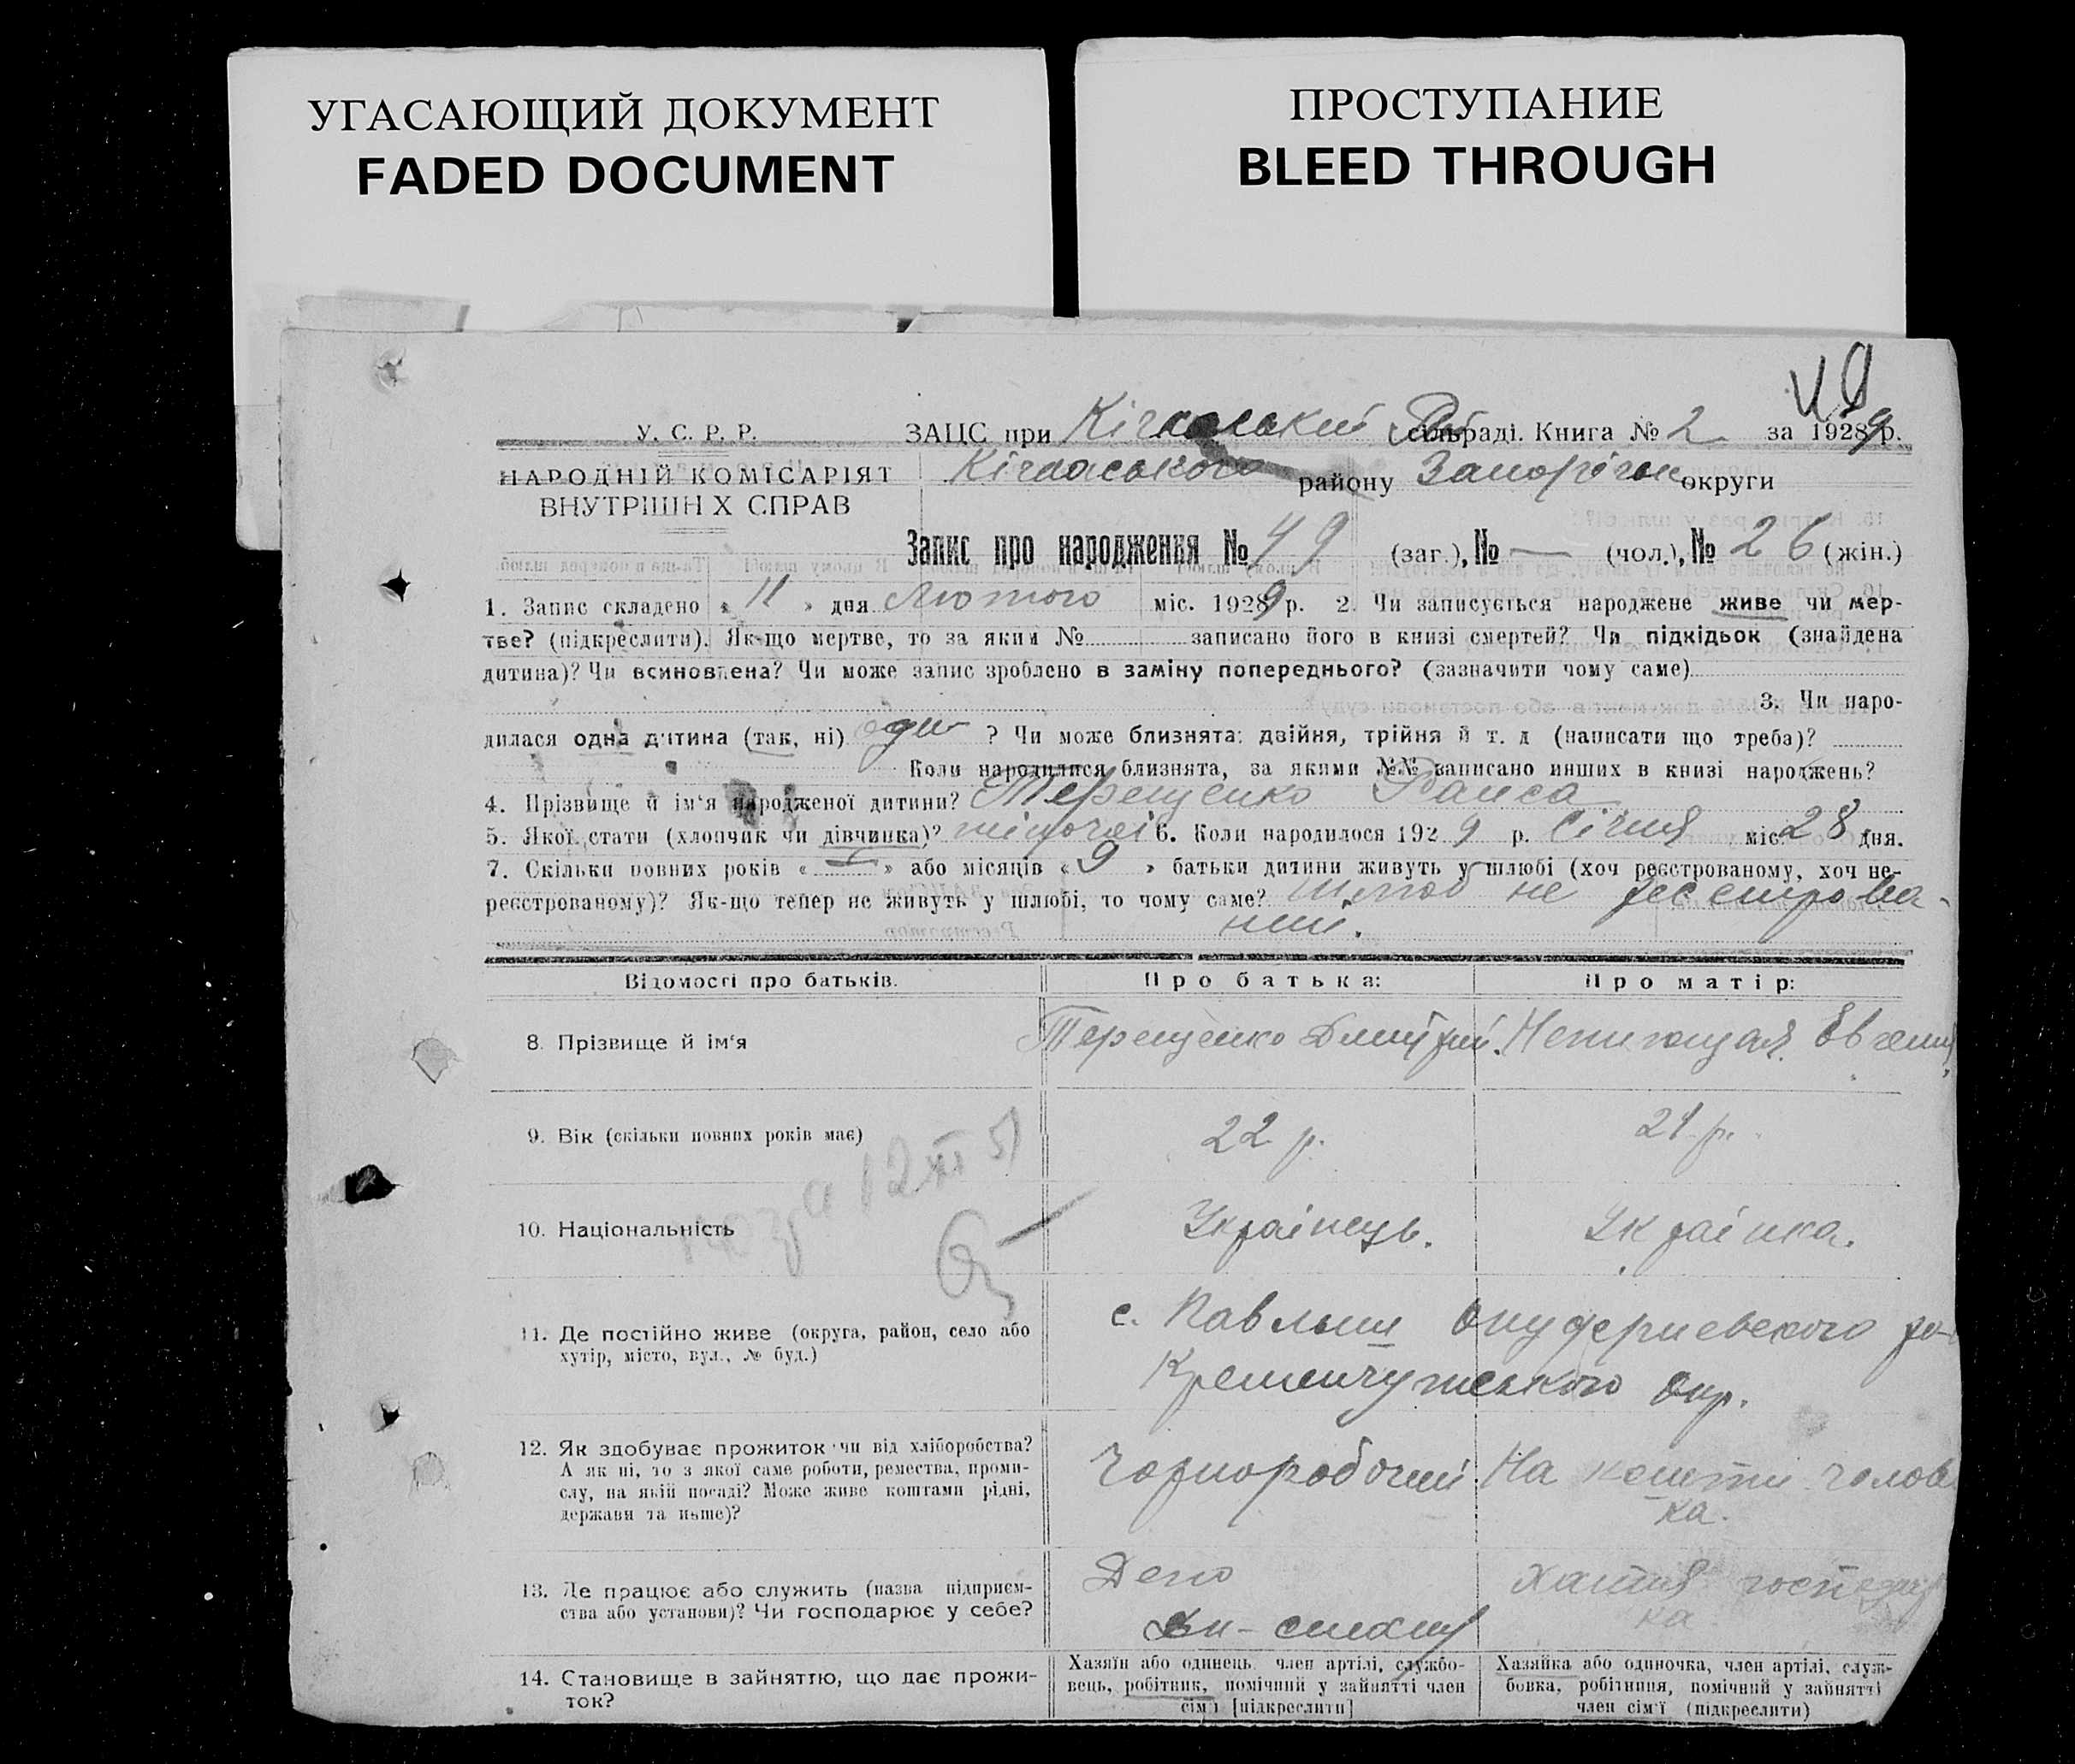 УГАСАЮЩИЙ ДОКУМЕНТ
FADED DOCUMENT
ПРОСТУПАНИЕ
BLEED THROUGH
49
У. С. Р. Р.
НАРОДНІЙ КОМІСАРІЯТ
ВНУТРІШН Х СПРАВ
ЗАЦС при Кічкаський сільраді. Книга № 2 за 1929 р.
Кічкаського району Запоріжж округи
Запис про народження № 49 (заг.), № — (чол.), № 26 (жін.)
1. Запис складено « 11 » дня Лютого міс. 1929 р. 2. Чи записується народжене живе чи мер-
тве? (підкреслити). Як-що мертве, то за яким № записано його в книзі смертей? Чи підкідьок (знайдена
дитина)? Чи всиновлена? Чи може запис зроблено в заміну попереднього? (зазначити чому саме)
3. Чи наро-
дилася одна дитина (так, ні) ? Чи може близнята: двійня, трійня й т. д (написати що треба)?
Коли народилися близнята, за якими №№ записано инших в книзі народжень?
4. Прізвище й ім‘я народженої дитини? Терещенко Раиса
5. Якої стати (хлопчик чи дівчинка)? жіночої 6. Коли народилося 1929 р. Січня міс. 28 дня.
7. Скільки повних років « — » або місяців « 9 » батьки дитини живуть у шлюбі (хоч реєстрованому, хоч не-
реєстрованому)? Як-що тепер не живуть у шлюбі, то чому саме? Шлюб не реєстрова-
ний.
Відомості про батьків.
Про батька:
Про матір:
8. Прізвище й ім‘я
Терещенко Дмитрий.
Евгения
9. Вік (скільки повних років має)
22 р.
21 р.
10. Національність
Українець.
Українка.
11. Де постійно живе (округа, район, село або
хутір, місто, вул., № буд.)
с. Павлыш Онуфриевского ра-
Кременчужського окр.
12. Як здобуває прожиток чи від хліборобства?
А як ні, то з якої саме роботи, ремества, проми-
слу, на якій посаді? Може живе коштами рідні,
держави та инше)?
Чорноробочий.
На кошти чолові
ка.
13. Де працює або служить (назва підприєм-
ства або установи)? Чи господарює у себе?
Депо
Хатня господар
ка
14. Становище в зайняттю, що дає прожи-
ток?
Хазяїн або одинець, член артілі, службо-
вець, робітник, помічний у зайнятті член
сім‘ї [підкреслити]
Хазяйка або одиночка, член артілі, служ-
бовка, робітниця, помічний у зайнятті
член сім‘ї (підкреслити)